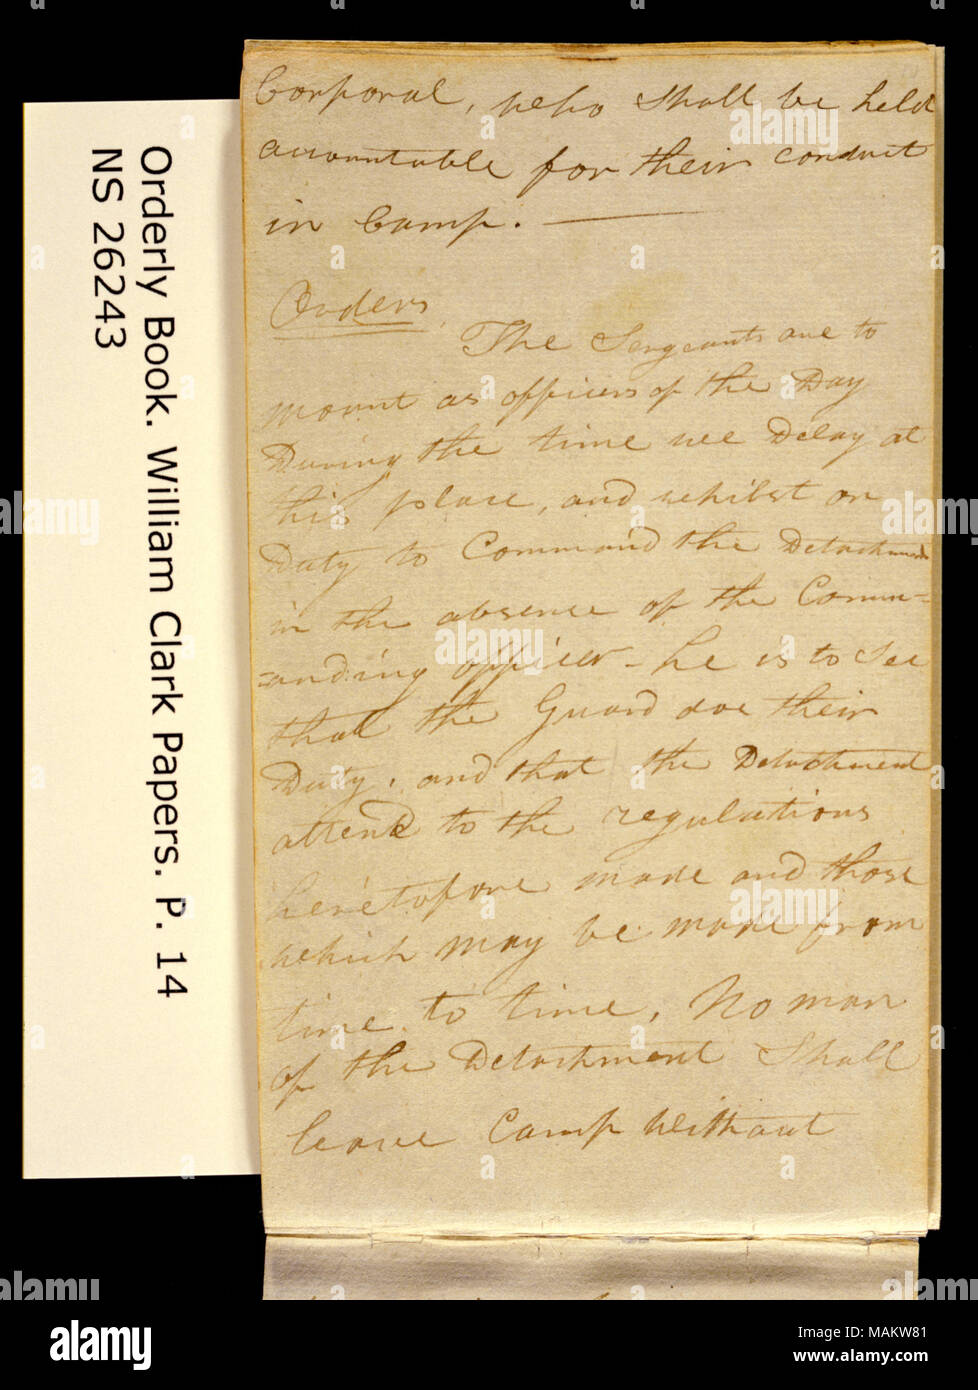 Corporal, who shall be held
accountable for their conduct
in Camp.
Orders
The Sergeants are to
mount as officers of the Day
During the time we Delay at
this place, and whilst on
Duty to Command the Detachment
in the absence of the Comm=
=anding officer - he is to See
that the Guard doe their
Duty, and that the Detachment
attend to the regulations
heretofore made and those
which may be made from
time to time, No man
of the Detachment Shall
leave Camp without
Orderly Book. William Clark Papers. P. 14
NS 26243
alamy
Image ID: MAKW81
www.alamy.com